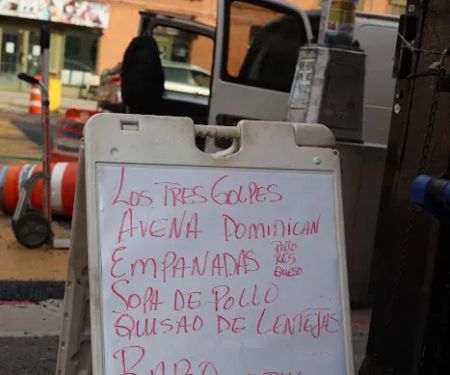 Los Tres Golpes
Avena Dominican
Empanadas Pollo
Res
Queso
Sopa de Pollo
Quisao de Lentejas